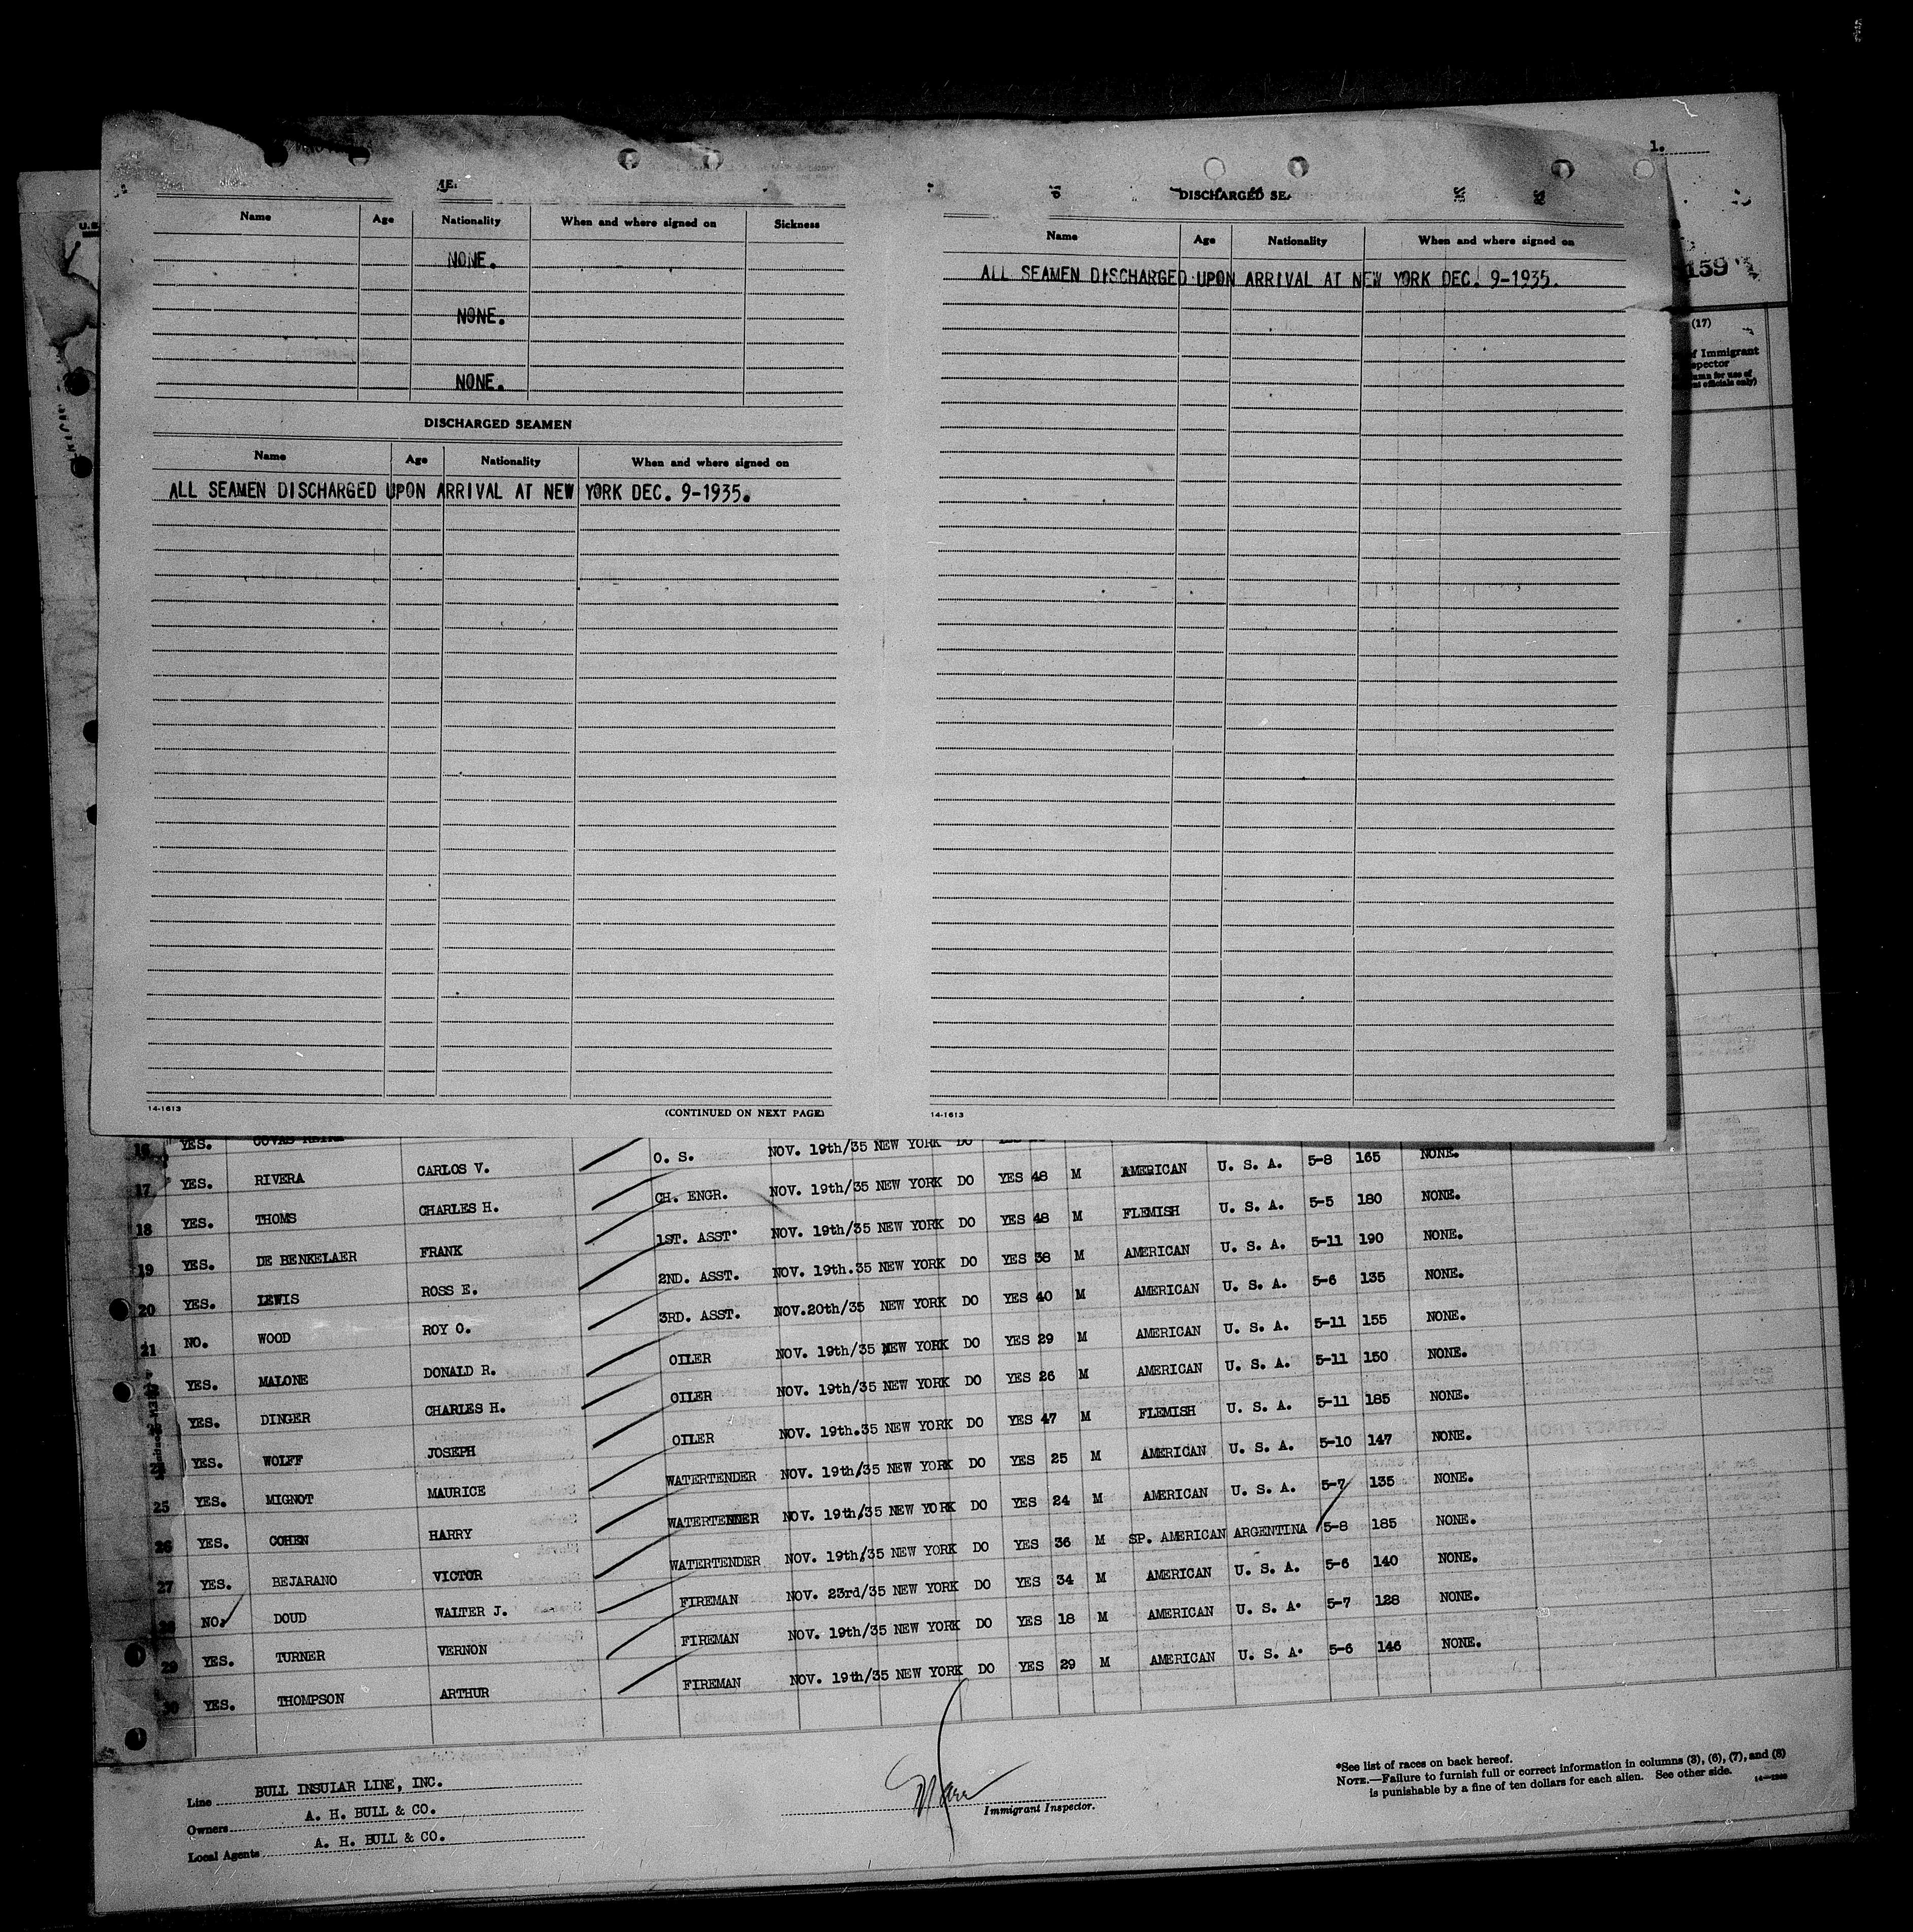 1.
Name Age Nationality When and where signed on Sickness
NONE.
NONE.
NONE.
DISCHARGED SEAMEN
Name Age Nationality When and where signed on
ALL SEAMEN DISCHARGED UPON ARRIVAL AT NEW YORK DEC. 9-1935.
14-1613 (CONTINUED ON NEXT PAGE)
DISCHARGED SEA
Name Age Nationality When and where signed on
ALL SEAMEN DISCHARGED UPON ARRIVAL AT NEW YORK DEC. 9-1935.
14-1613
159
(17)
f Immigrant
spector
officials only)
16 YES. O. S. NOV. 19th/35 NEW YORK DO
17 YES. RIVERA CARLOS V.
18 YES. THOMS CHARLES H. CH. ENGR. NOV. 19th/35 NEW YORK DO YES 48 M AMERICAN U. S. A. 5-8 165 NONE.
19 YES. DE BENKELAER FRANK 1ST. ASST. NOV. 19th/35 NEW YORK DO YES 48 M FLEMISH U. S. A. 5-5 180 NONE.
20 YES. LEWIS ROSS E. 2ND. ASST. NOV. 19th.35 NEW YORK DO YES 38 M AMERICAN U. S. A. 5-11 190 NONE.
21 NO. WOOD ROY O. 3RD. ASST. NOV.20th/35 NEW YORK DO YES 40 M AMERICAN U. S. A. 5-6 135 NONE.
YES. MALONE DONALD R. OILER NOV. 19th/35 NEW YORK DO YES 29 M AMERICAN U. S. A. 5-11 155 NONE.
YES. DINGER CHARLES H. OILER NOV. 19th/35 NEW YORK DO YES 26 M AMERICAN U. S. A. 5-11 150 NONE.
YES. WOLFF JOSEPH OILER NOV. 19th.35 NEW YORK DO YES 47 M FLEMISH U. S. A. 5-11 185 NONE.
25 YES. MIGNOT MAURICE WATERTENDER NOV. 19th/35 NEW YORK DO YES 25 M AMERICAN U. S. A. 5-10 147 NONE.
26 YES. COHEN HARRY WATERTENDER NOV. 19th/35 NEW YORK DO YES 24 M AMERICAN U. S. A. 5-7 135 NONE.
27 YES. BEJARANO VICTOR WATERTENDER NOV. 19th/35 NEW YORK DO YES 36 M SP. AMERICAN ARGENTINA 5-8 185 NONE.
28 NO. DOUD WALTER J. FIREMAN NOV. 23rd/35 NEW YORK DO YES 34 M AMERICAN U. S. A. 5-6 140 NONE.
29 YES. TURNER VERNON FIREMAN NOV. 19th/35 NEW YORK DO YES 18 M AMERICAN U. S. A. 5-7 128 NONE.
30 YES. THOMPSON ARTHUR FIREMAN NOV. 19th/35 NEW YORK DO YES 29 M AMERICAN U. S. A. 5-6 146 NONE.
Line BULL INSULAR LINE, INC.
Owners A. H. BULL & CO.
Local Agents A. H. BULL & CO.
Immigrant Inspector.
*See list of races on back hereof.
NOTE.—Failure to furnish full or correct information in columns (3), (6), (7), and (8)
is punishable by a fine of ten dollars for each alien. See other side.